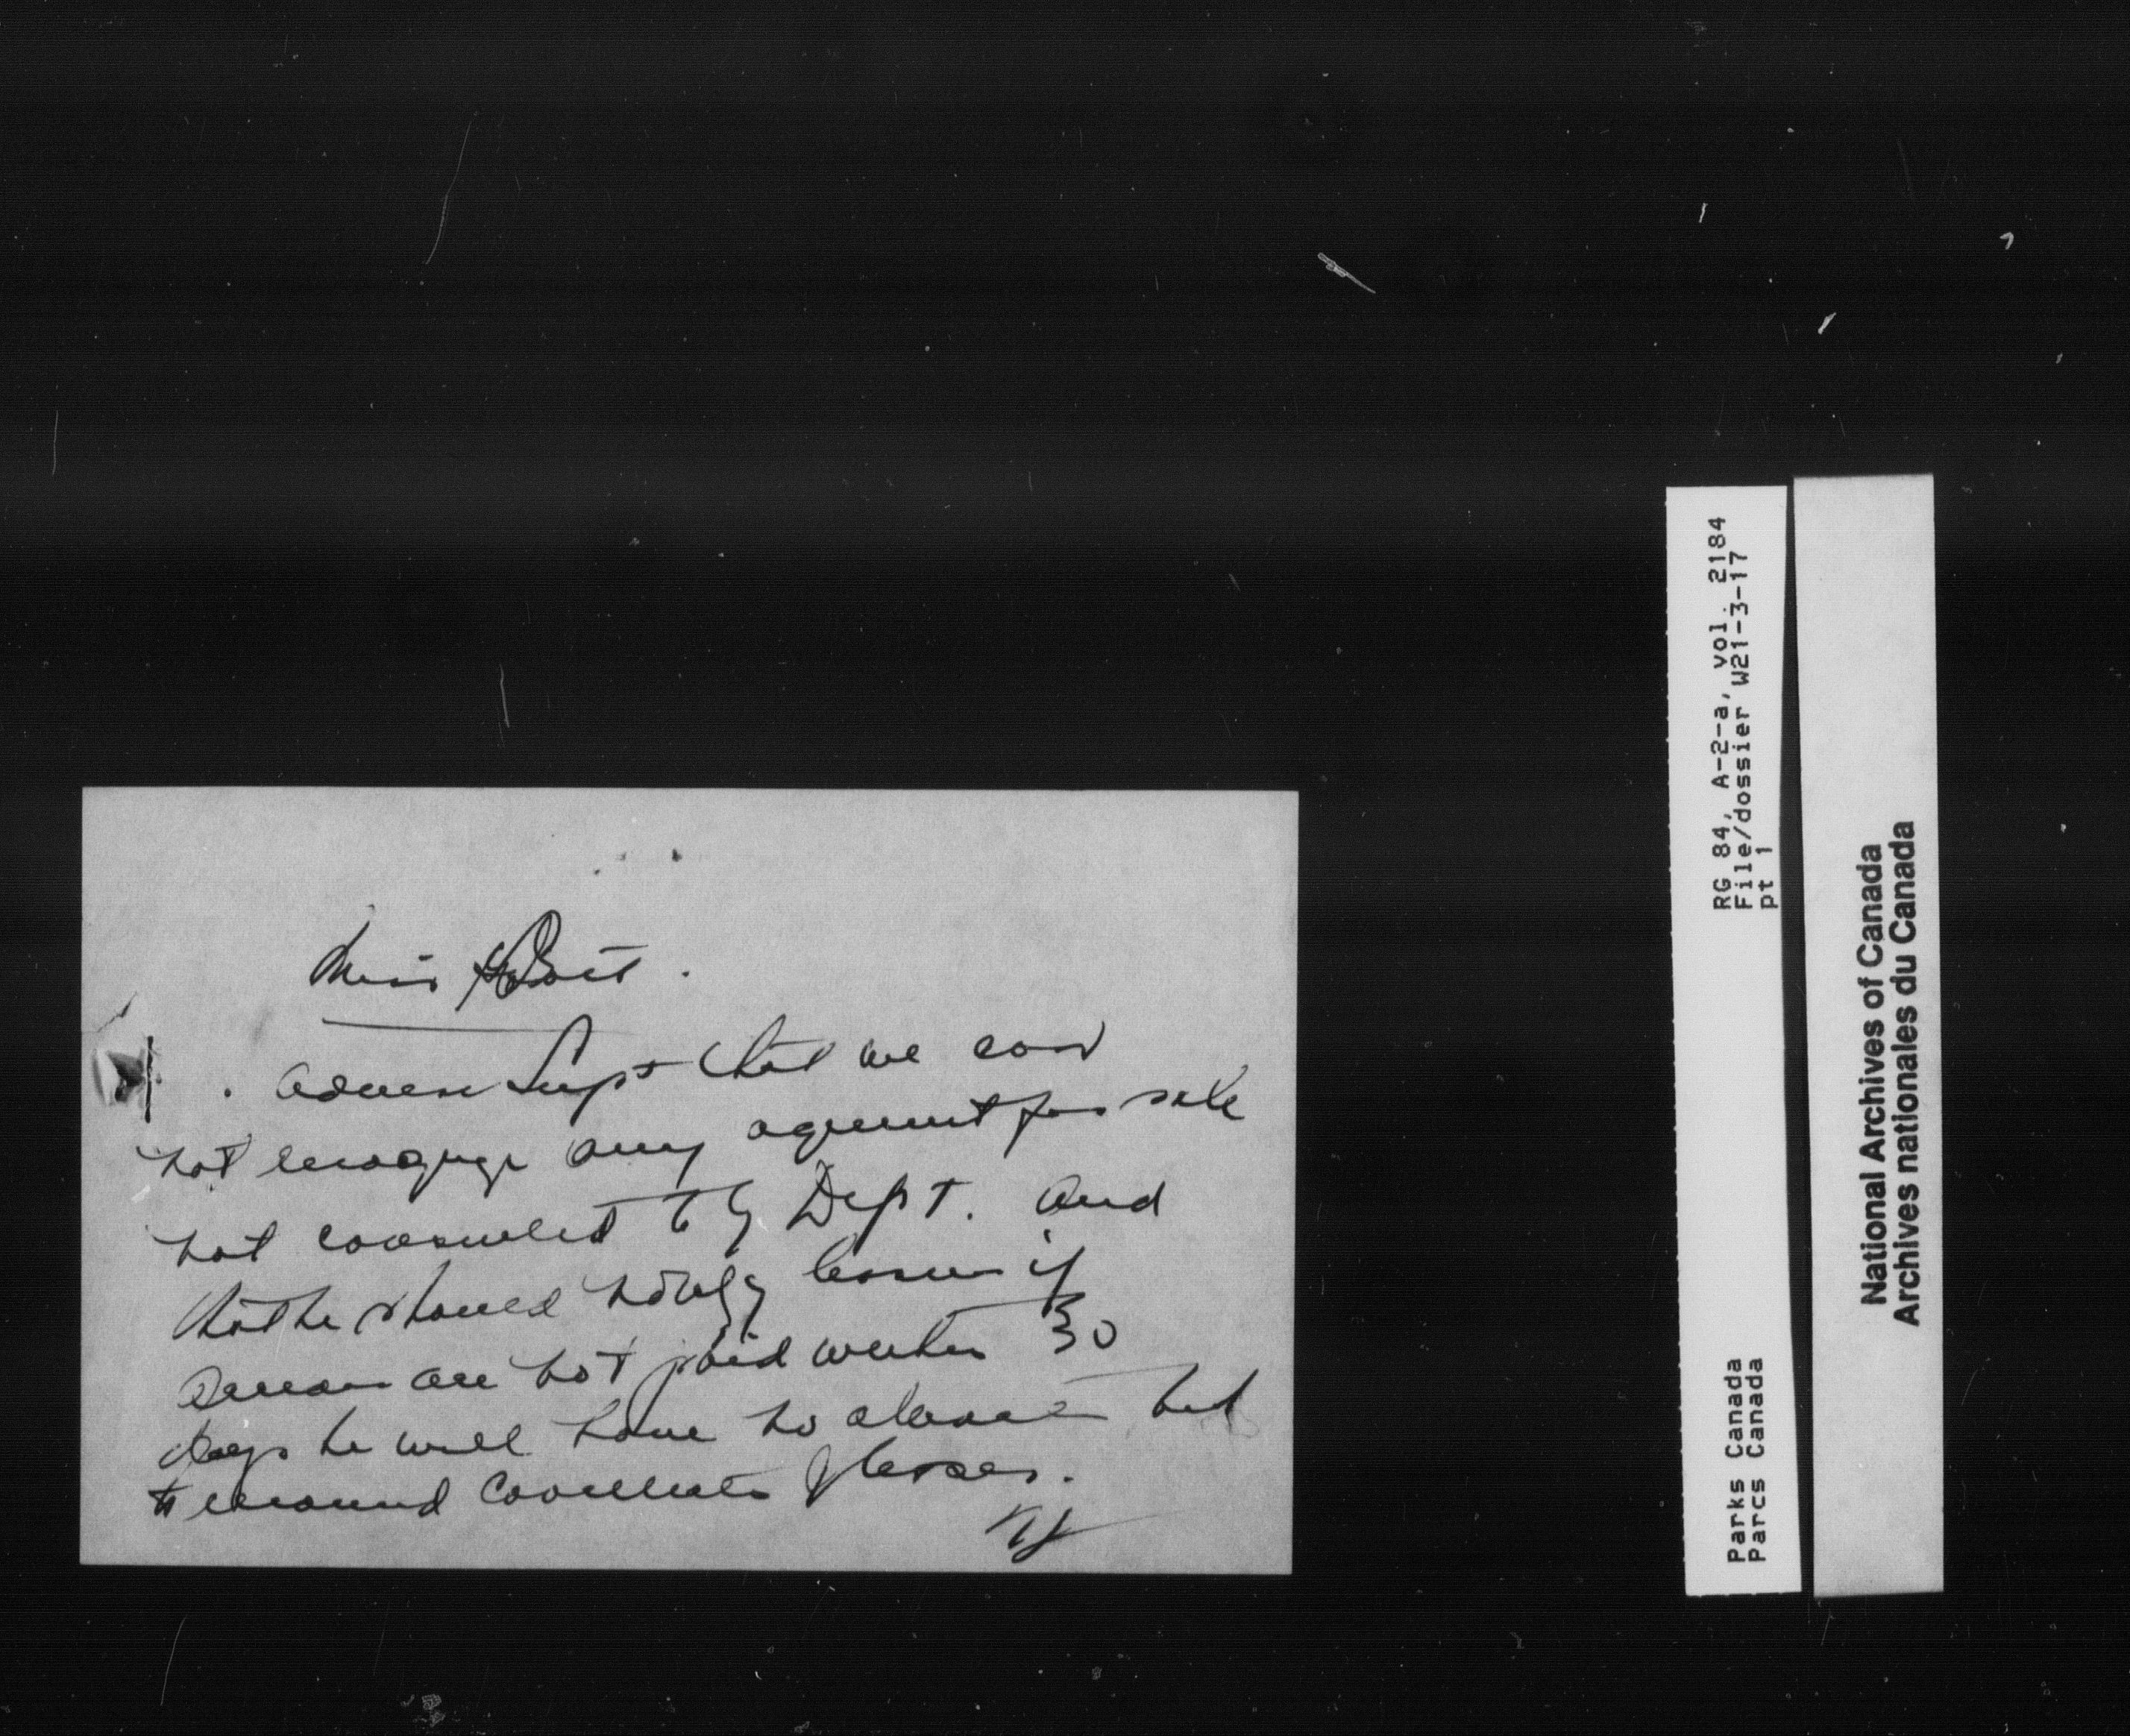 Miss
Advise Supt that we can
not recognize any agreement for sale
not consented to by Dept. and
that he should notify lessee if
arrears are not paid within 30
days he will have no alternative but
to recommend cancellation of lease.
RG 84, A-2-a, vol. 2184
File/dossier W21-3-17
pt 1
Parks Canada
Parcs Canada
National Archives of Canada
Archives nationales du Canada